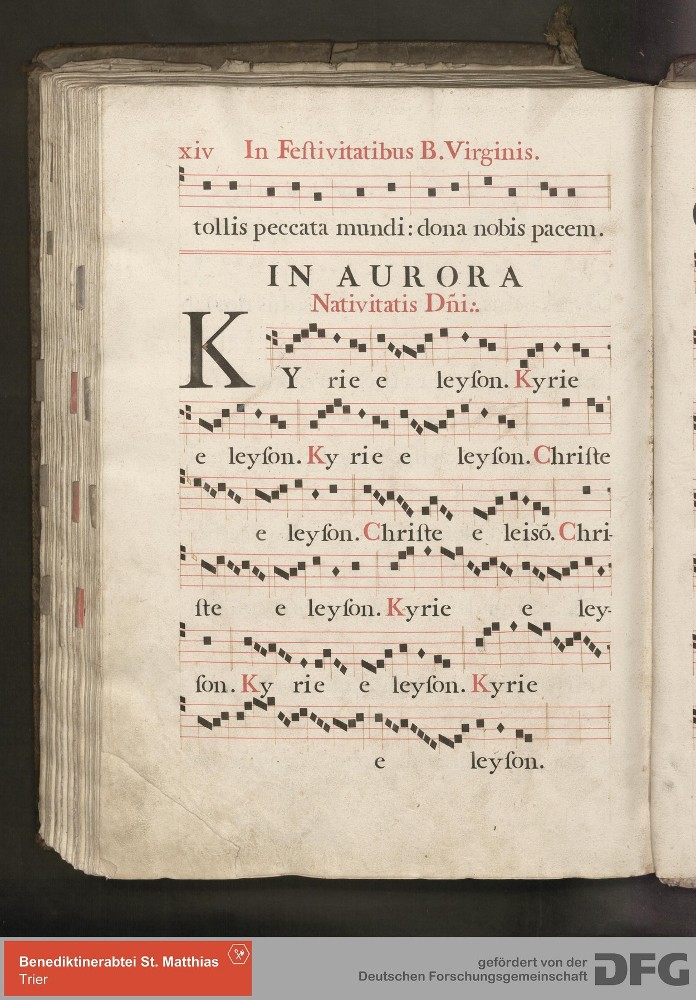 xiv In Feſtivitatibus B. Virginis.
tollis peccata mundi: dona nobis pacem.
IN AURORA
Nativitatis Dn̄i:.
KY rie e leyſon. Kyrie
e leyſon. Ky rie e leyſon. Chriſte
e leyſon. Chriſte e leisō. Chri-
ſte e leyſon. Kyrie e ley-
ſon. Ky rie e leyſon. Kyrie
e leyſon.
Benediktinerabtei St. Matthias
Trier
gefördert von der
Deutschen Forschungsgemeinschaft
DFG